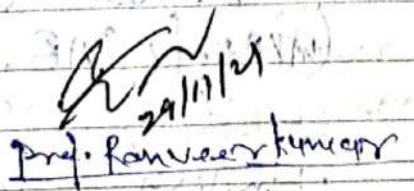 29/11/21
Prof. Ranveer kumar